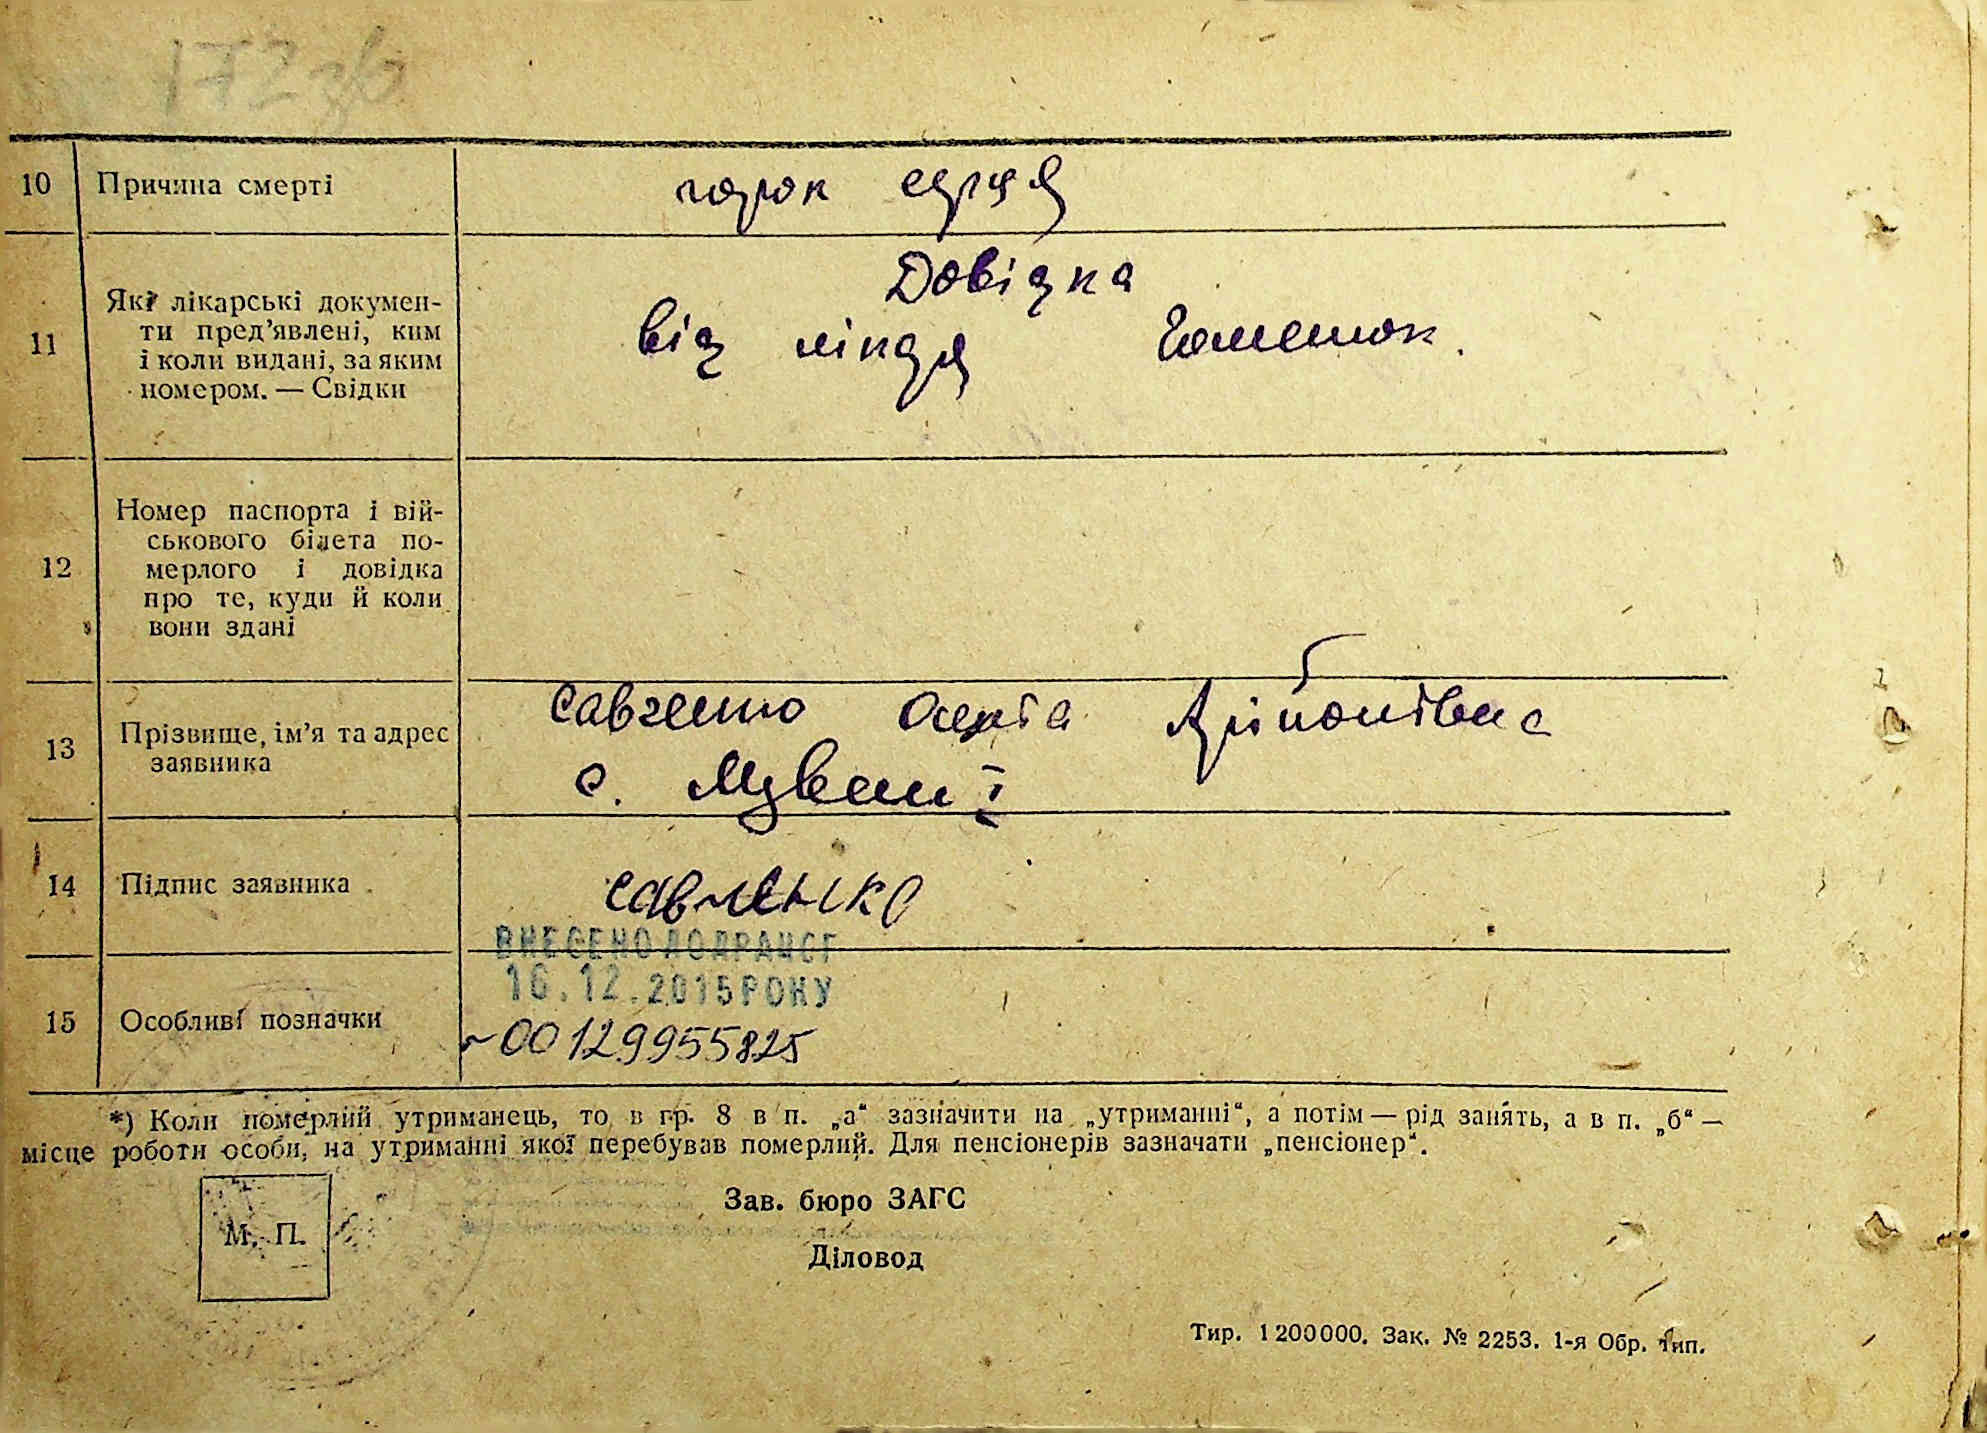 172зв
10 Причина смерті порок серця
11 Які лікарські документи пред'явлені, ким і коли видані, за яким номером. — Свідки
Довідка
від лікаря
12 Номер паспорта і вій-
ськового білета по-
мерлого і довідка
про те, куди й коли
вони здані
13 Прізвище, ім'я та адрес
заявника
Савченко
с.
14 Підпис заявника Савченко
ВНЕСЕНО ДО ДРАЦСГ
16.12.2015 РОКУ
15 Особливі позначки
00129955825
*) Коли померлий утриманець, то в гр. 8 в п. „а“ зазначити на „утриманні“, а потім — рід занять, а в п. „б“ —
місце роботи особи, на утриманні якої перебував померлий. Для пенсіонерів зазначати „пенсіонер“.
М. П.
Зав. бюро ЗАГС
Діловод
Тир. 1200000. Зак. № 2253. 1-я Обр. тип.